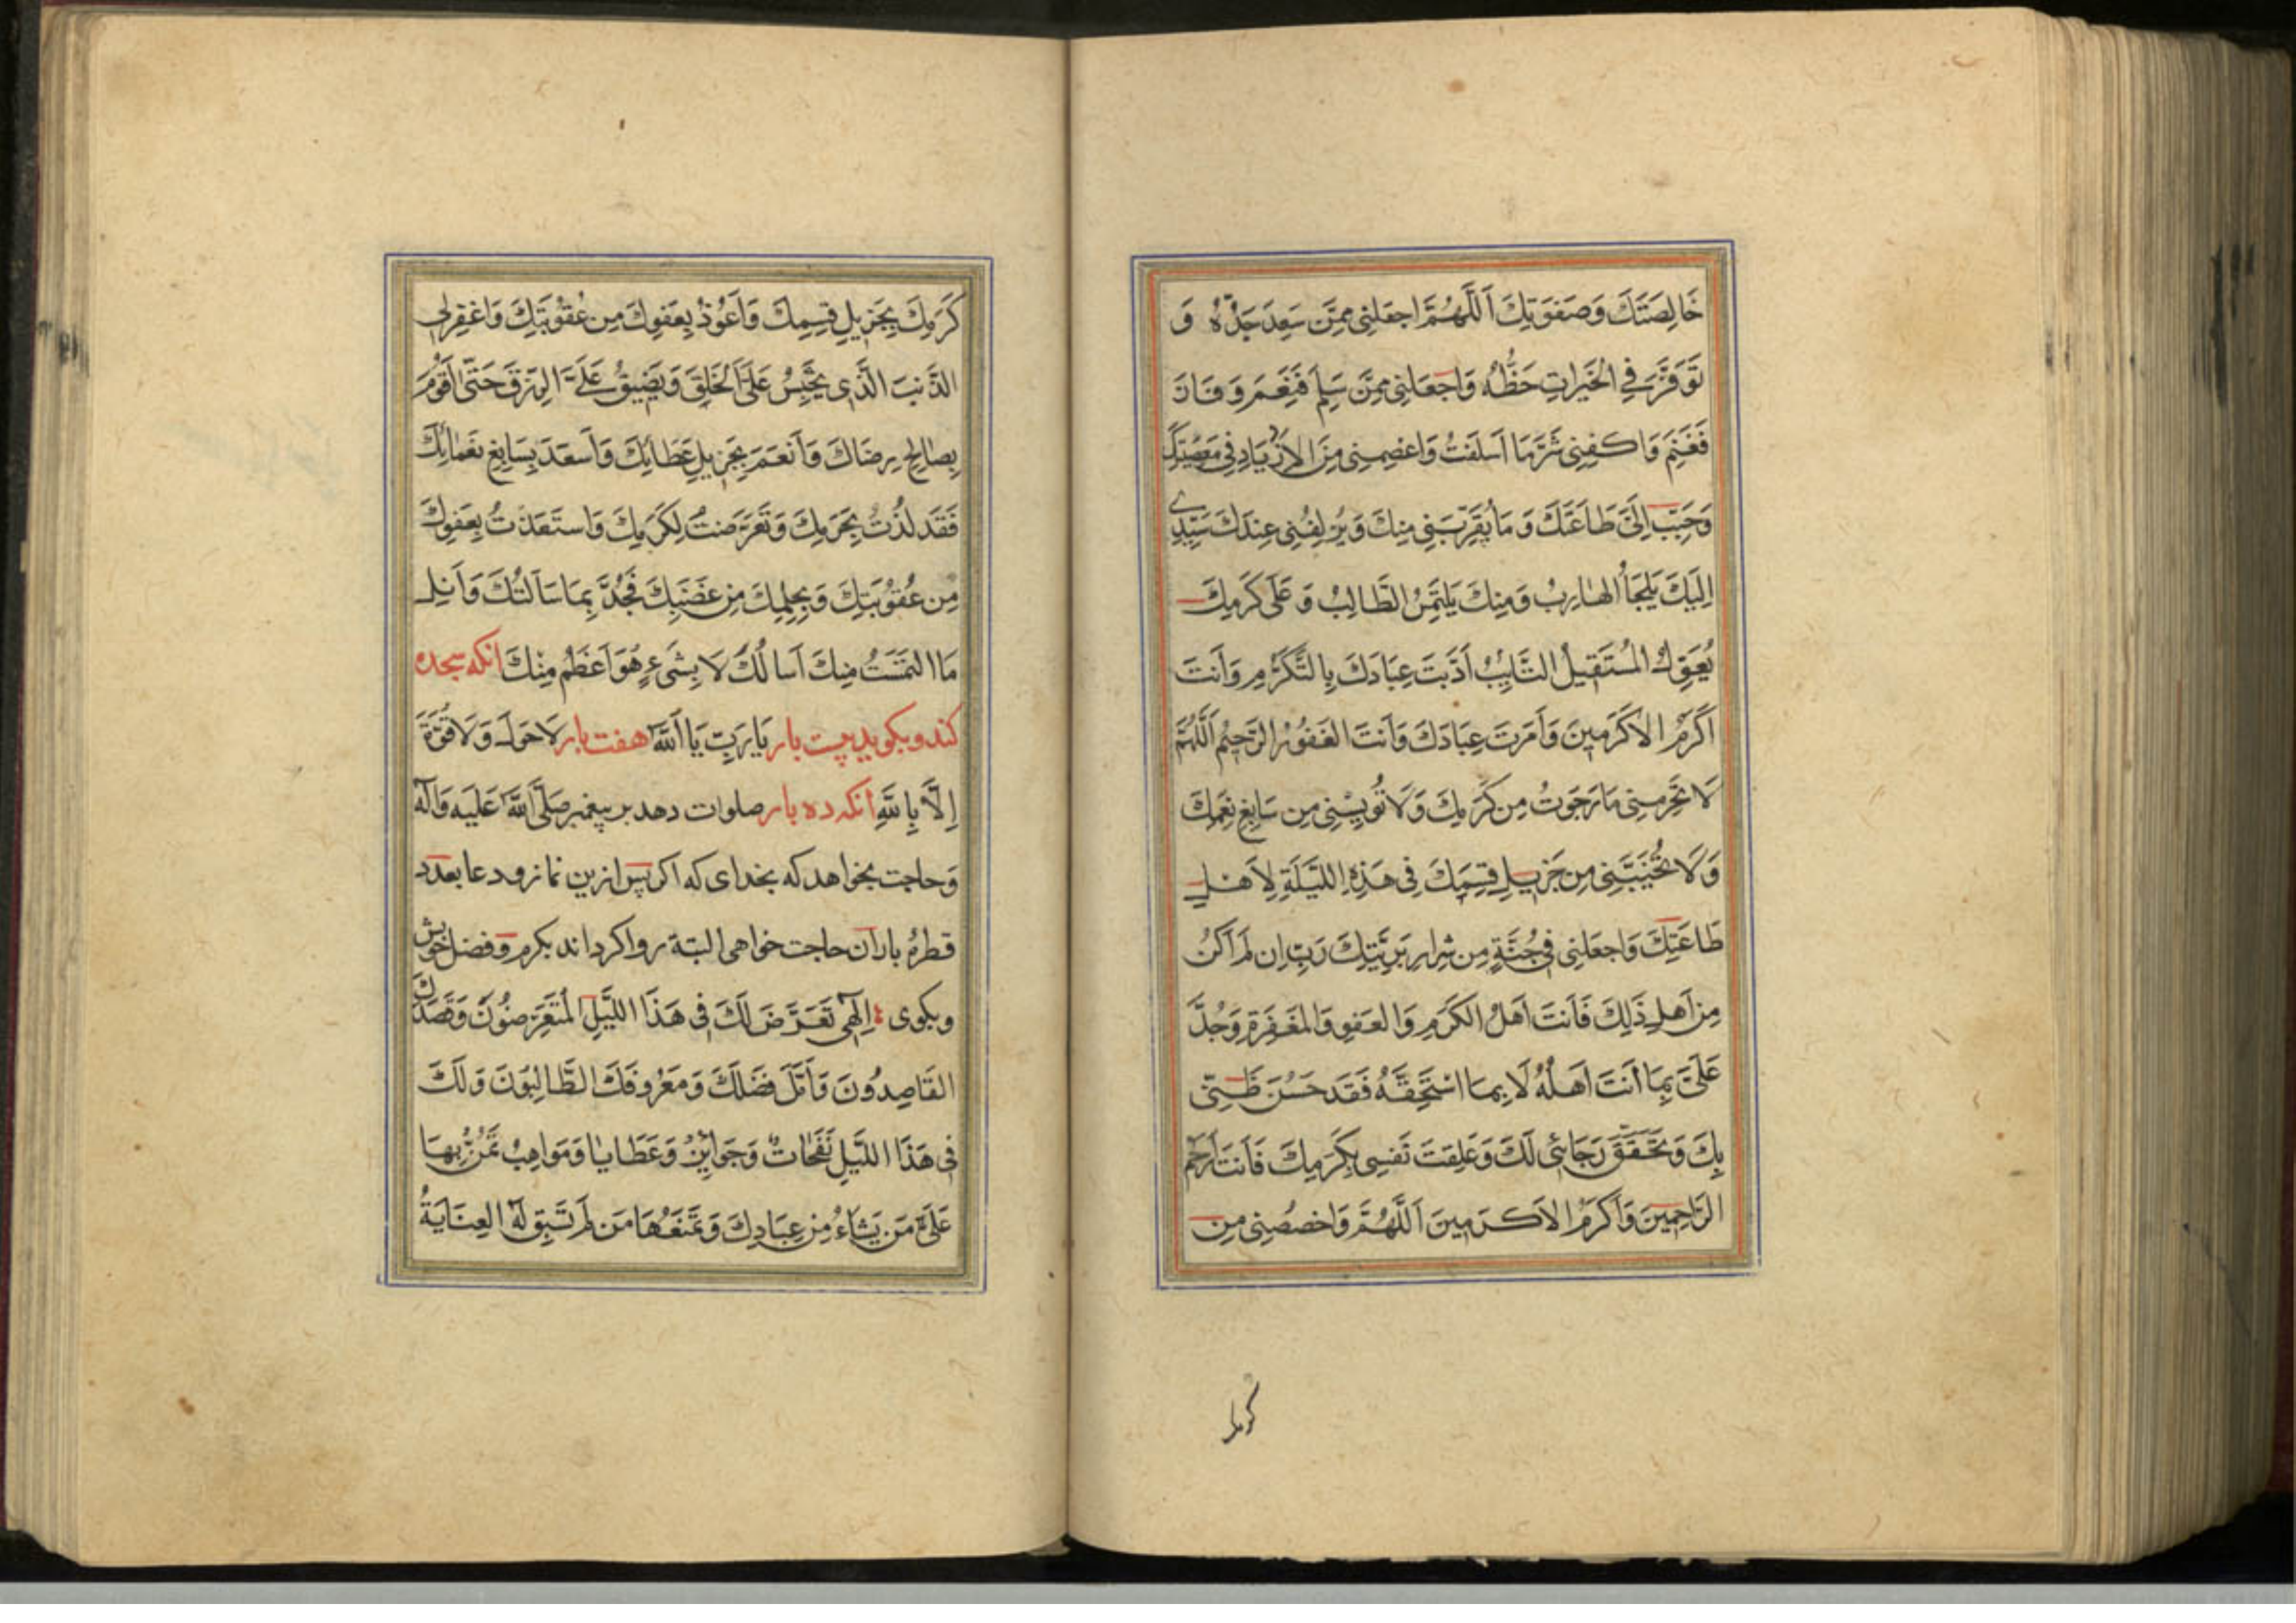 خَالِصَتَكَ وَصَفوَتِكَ اَللَّهُمَّ اجعَلنِی مِمَّن سَعِدَ جَدُّهُ وَ
تَوَفَّرَ فِی الخَیرَاتِ حَظُّهُ وَاجعَلنِی مِمَّن سَلِمَ فَنَعِمَ وَ فَازَ
فَغَنِمَ وَاکفِنِی شَرَّمَا اَسلَفتُ وَاعصِمنِی مِنَ الاِزدِیَادِ فِی مَعصِیَتِكَ
وَحَبِّب اِلَیَّ طَاعَتَكَ وَ مَا یُقَرِّبَنِی مِنكَ وَیُزلِفُنِی عِندَكَ سَیِّدِی
اِلَیكَ یَلجَأُ الهَارِبُ وَمِنكَ یَلتَمِسُ الطَّالِبُ وَ عَلَی کَرَمِكَ
یُعَوِّلُ المُستَقِیلُ التَّائِبُ اَدَّبتَ عِبَادَكَ بِالتَّکَرُّمِ وَاَنتَ
اَکرَمُ الاَکرَمِینَ وَاَمَرتَ عِبَادَكَ وَاَنتَ الغَفُورُ الرَّحِیمُ اَللَّهُمَّ
لَا تَحرِمنِی مَا رَجَوتُ مِن کَرَمِكَ وَلَا تُویِسنِی مِن سَابِغِ نِعَمِكَ
وَلَا تُخَیِّبَنِّی مِن جَزِیلِ قِسَمِكَ فِی هَذِهِ اللَّیلَةِ لِاَهلِ
طَاعَتِكَ وَاجعَلنِی فِی جُنَّةٍ مِن شِرَارِ بَرِیَّتِكَ رَبِّ اِن لَم اَکُن
مِن اَهلِ ذَلِكَ فَاَنتَ اَهلُ الکَرَمِ وَالعَفوِ وَالمَغفِرَةِ وَجُدَّ
عَلَیَّ بِمَا اَنتَ اَهلُهُ لَا بِمَا اَستَحِقُّهُ فَقَد حَسُنَ ظَنِّی
بِكَ وَتَحَقَّقَ رَجَائِی لَكَ وَعَلِقَت نَفسِی بِکَرَمِكَ فَاَنتَ اَرحَمُ
الرَّاحِمِینَ وَاَکرَمُ الاَکرَمِینَ اَللَّهُمَّ وَاخصُصنِی مِن
کَرَمِكَ بِجَزِیلِ قِسَمِكَ وَاَعُوذُ بِعَفوِكَ مِن عُقُوبَتِكَ وَاغفِرلِی
الذَّنبَ الَّذِی یَحبِسُ عَلَیَّ الخُلُقَ وَیُضَیِّقُ عَلَیَّ الرِّزقَ حَتَّی اَقُومَ
بِصَالِحِ رِضَاكَ وَاَنعَمَ بِجَزِیلِ عَطَائِكَ وَاَسعَدَ بِسَابِغِ نَعمَائِكَ
فَقَد لُذتُ بِحَرَمِكَ وَتَعَرَّضتُ لِکَرَمِكَ وَاستَعَذتُ بِعَفوِكَ
مِن عُقُوبَتِكَ وَبِحِلمِكَ مِن غَضَبِكَ فَجُدَّ بِمَا سَاَلتُكَ وَاَنِل
مَا التَمَستُ مِنكَ اَسالُكَ لَا بِشَیءٍ هُوَ اَعظَمُ مِنكَ انکه سجده
کند و بکوید بیست بار یَا رَبِّ یَا اَللَّهُ هفت بار لَا حَولَ وَ لَا قُوَّةَ
اِلَّا بِاللَّهِ انکه ده بار صلوات دهد بر پیغمبر صَلَّی اللَّهُ عَلَیهِ وَآلِه
وَ حاجت بخواهد که بخدای که اکر پس ازین نماز و دعا بعدد
قطرهٔ باران حاجت خواهی البتة روا کرداند بکرم و فضل خویش
و بکوی اِلٰهِی تَعَرَّضَ لَكَ فِی هَذَا اللَّیلِ المُتَعَرِّضُونَ وَقَصَدَكَ
القَاصِدُونَ وَاَمَّلَ فَضلَكَ وَمَعرُوفَكَ الطَّالِبُونَ وَلَكَ
فِی هَذَا اللَّیلِ نَفَحَاتٌ وَجَوَائِزُ وَعَطَایَا وَمَوَاهِبُ تَمُنُّ بِهَا
عَلَی مَن یَشَاءُ مِن عِبَادِكَ وَ تَمنَعُهَا مَن لَم تَسبِق لَهُ العِنَایَةُ
کرمك